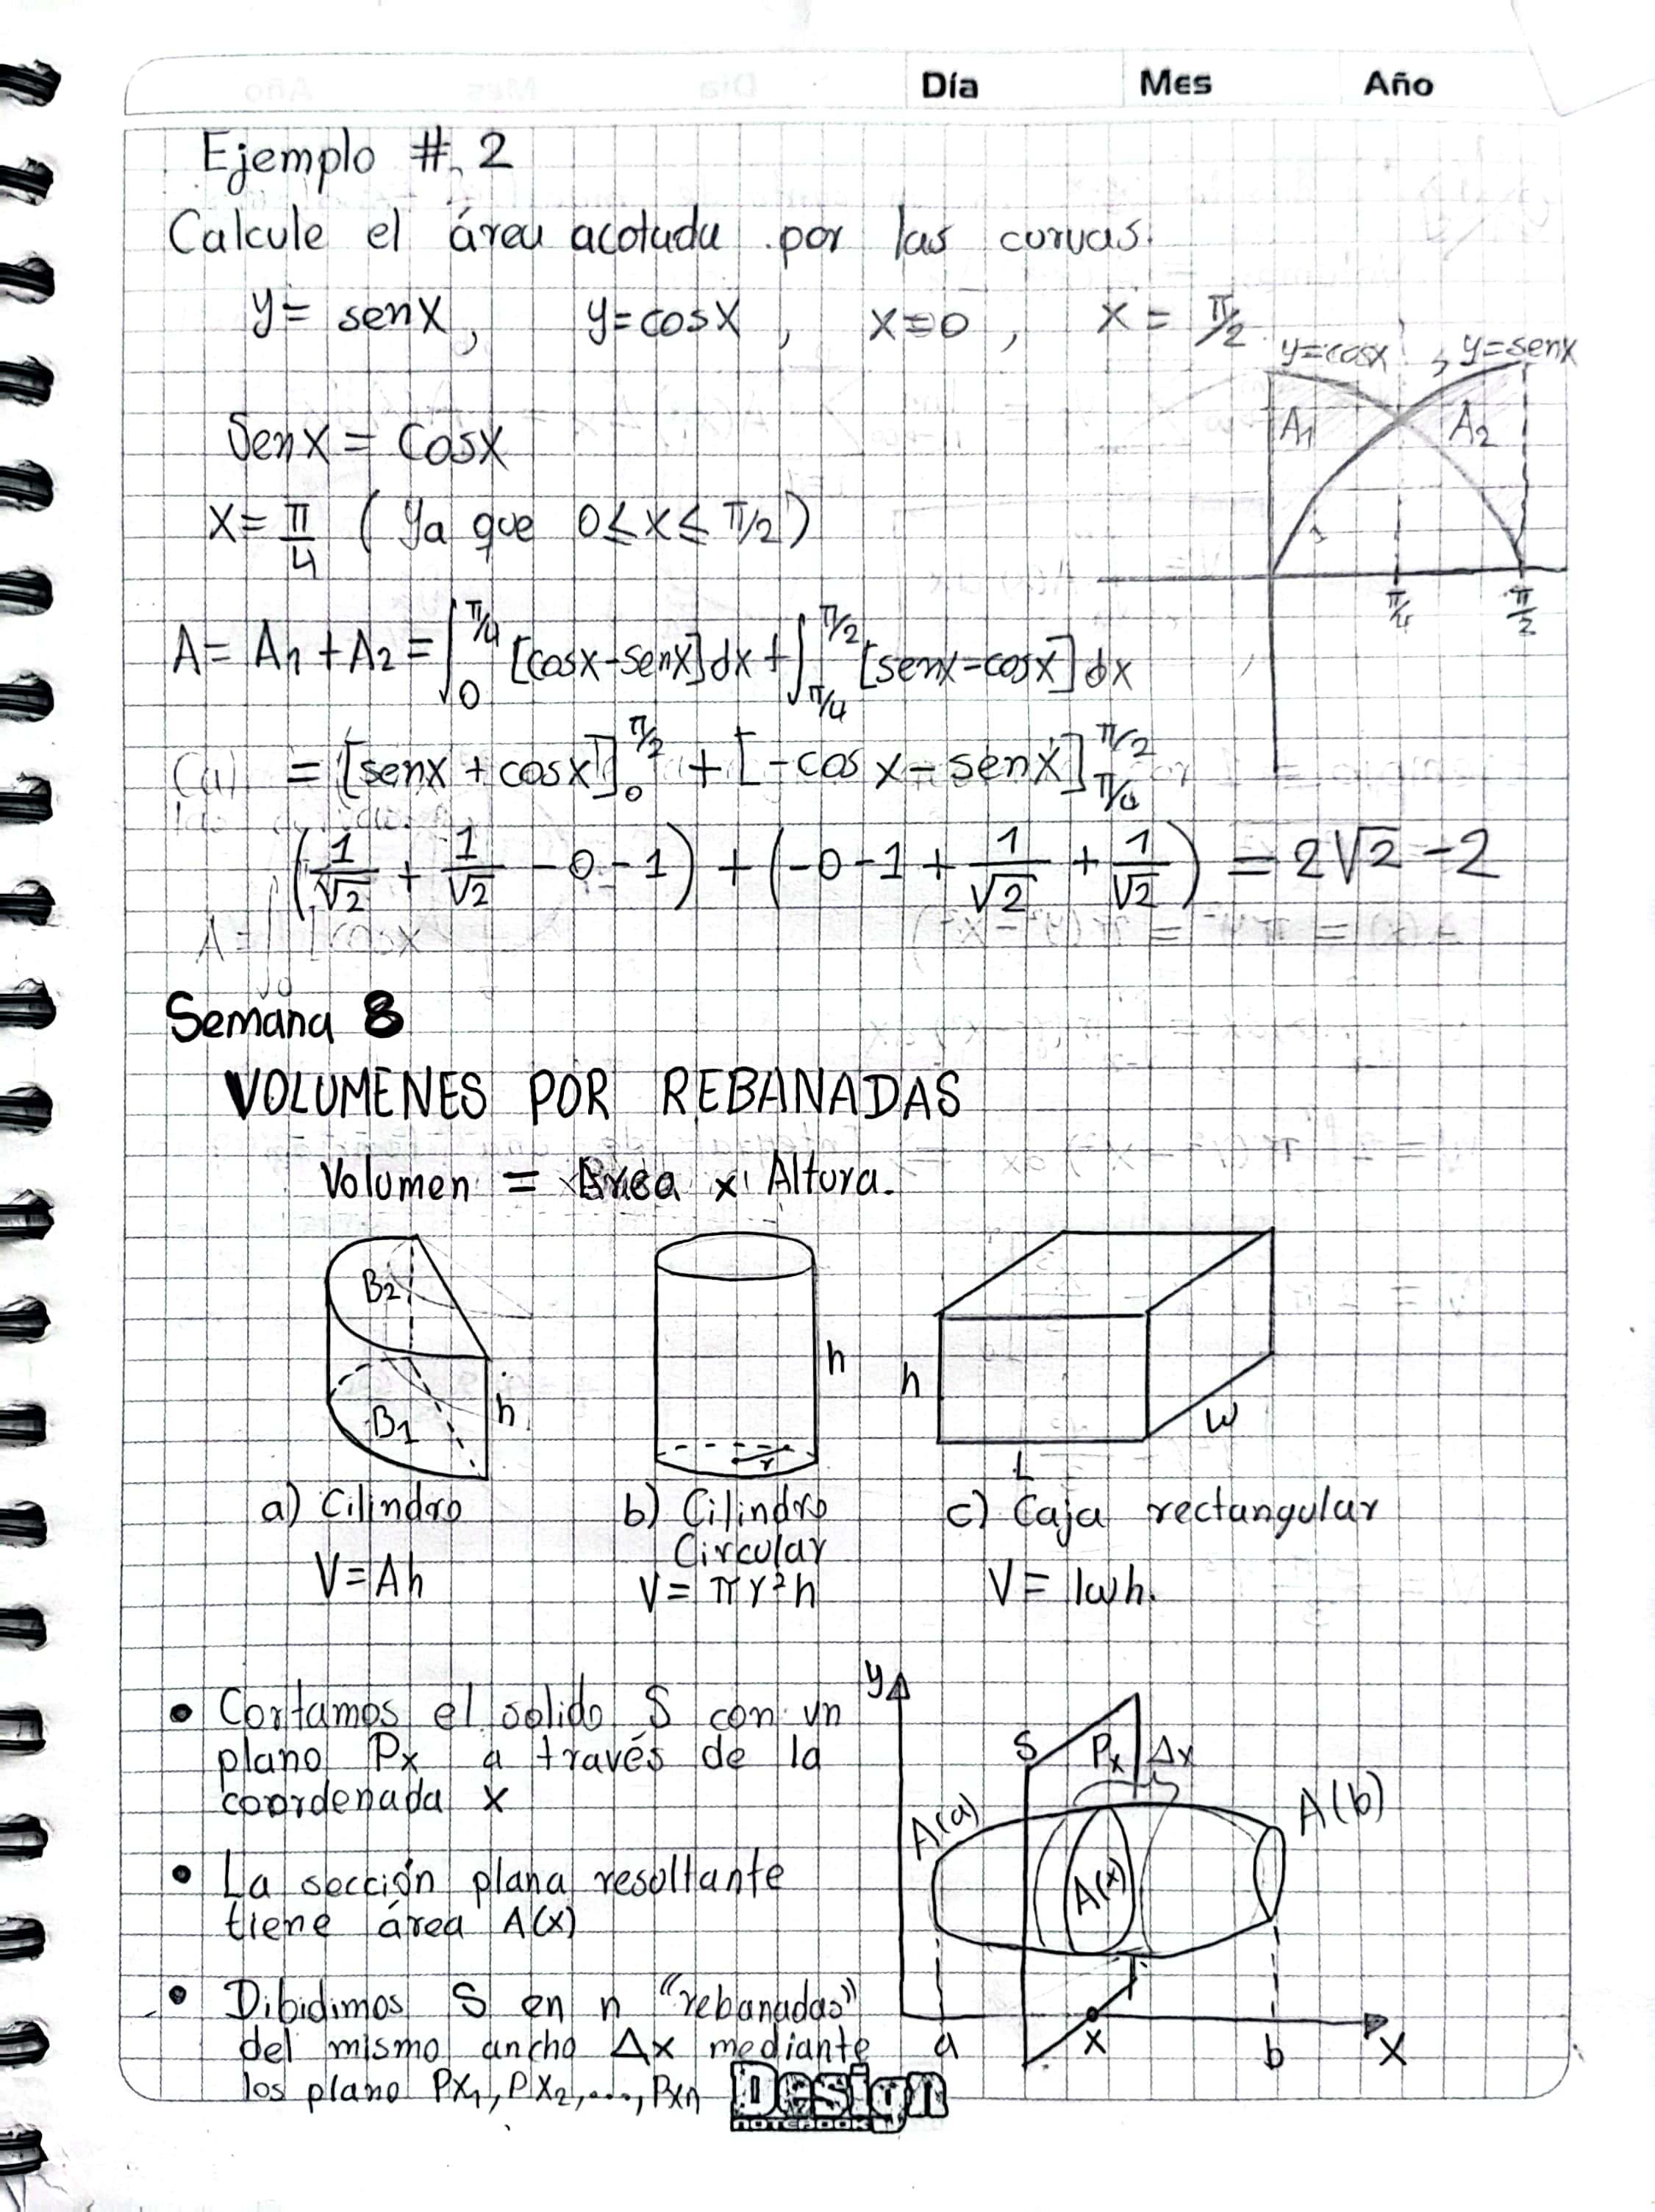 Día Mes Año
Ejemplo #. 2
Calcule el área acotada por las curvas.
y = senx, y=cosx, x=0, x = π/2
y=cosx, y=senx
A1 A2
π/4 π/2
Senx = Cosx
x = π/4 (Ya que 0≤x≤π/2)
A = A1 + A2 = ∫_0^{π/4} [cosx-senx]dx + ∫_{π/4}^{π/2} [senx-cosx]dx
= [senx + cosx]_0^{π/2} + [-cosx - senx]_{π/4}^{π/2}
(1/√2 + 1/√2 - 0 - 1) + (-0 - 1 + 1/√2 + 1/√2) = 2√2 - 2
Semana 8
VOLUMENES POR REBANADAS
Volumen = Area x Altura.
B2
B1
h
h
r
h
L
w
a) Cilindro b) Cilindro Circular c) Caja rectangular
V=Ah V= πr²h V= lwh.
• Cortamos el solido S con un
plano Px a través de la
coordenada x
• La sección plana resultante
tiene área A(x)
• Dibidimos S en n "rebanadas"
del mismo ancho Δx mediante
los plano Px1, Px2, ..., Pxn
y
S Px Δx
A(a) A(x) A(b)
a x b x
Design
NOTEBOOK